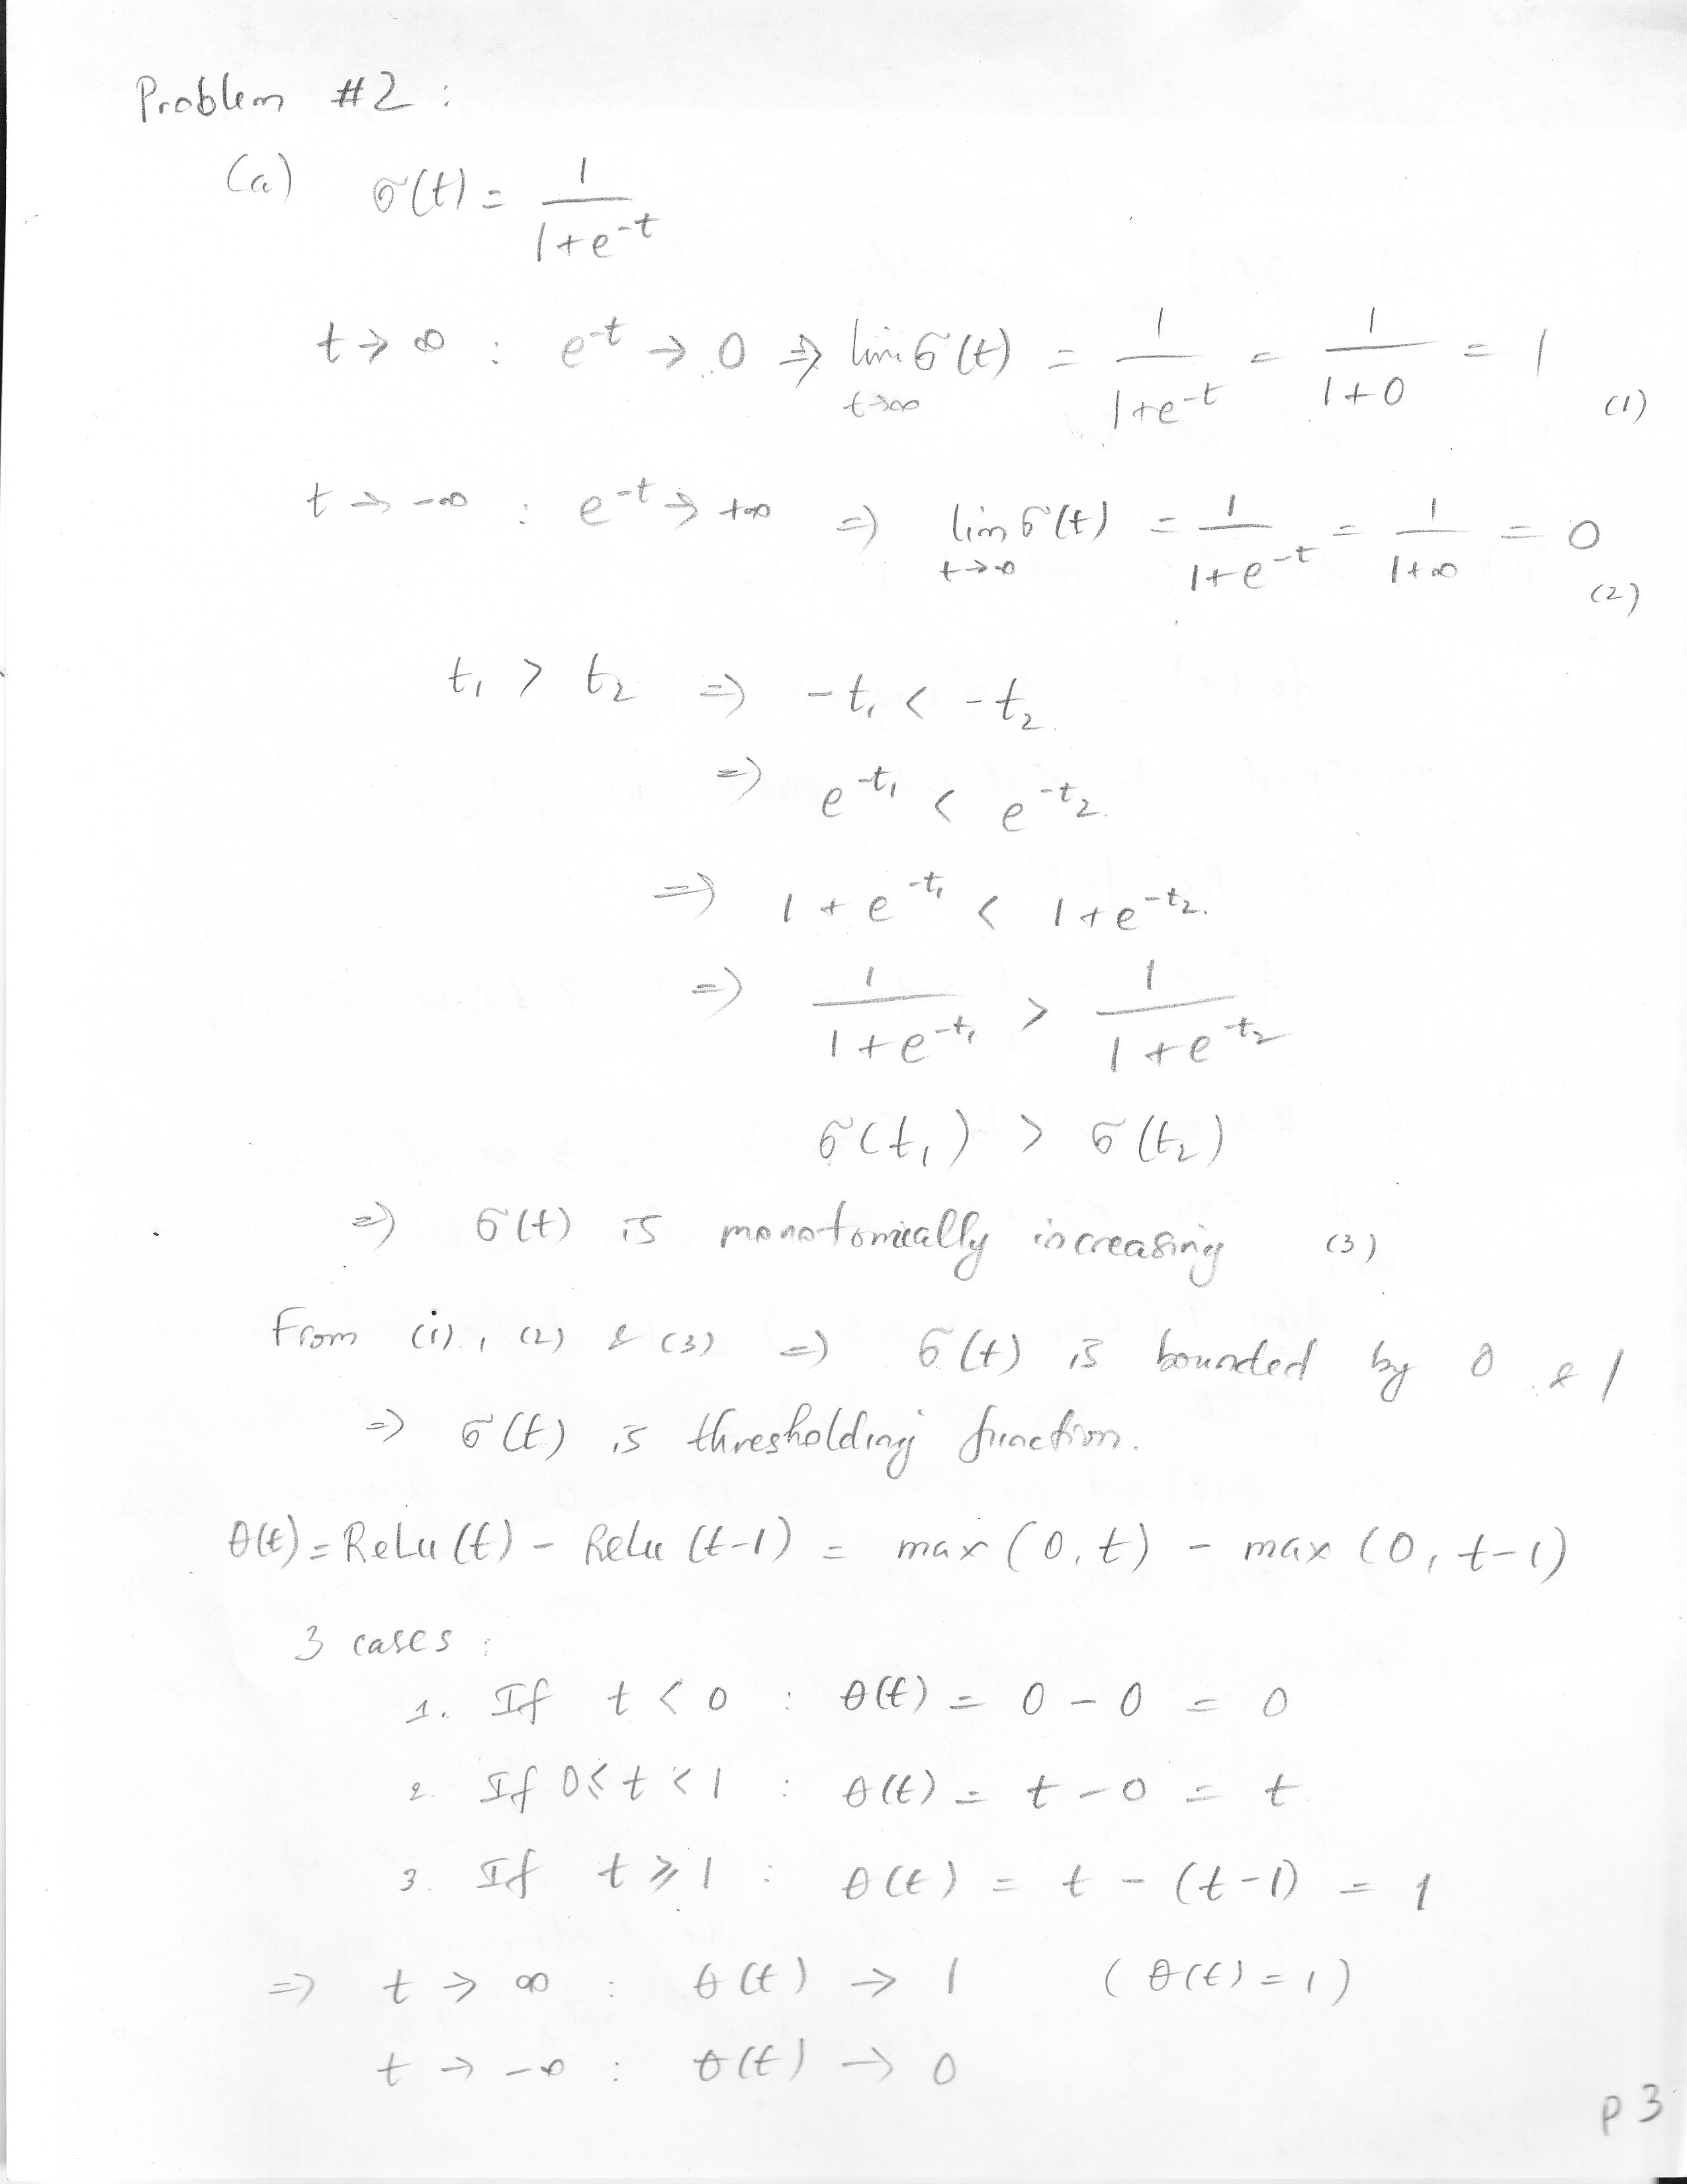 Problem #2 :
(a) σ(t) = 1/(1+e^-t)
t → ∞ : e^-t → 0 ⇒ lim_{t→∞} σ(t) = 1/(1+e^-t) = 1/(1+0) = 1 (1)
t → -∞ : e^-t → +∞ ⇒ lim_{t→-∞} σ(t) = 1/(1+e^-t) = 1/(1+∞) = 0 (2)
t₁ > t₂ ⇒ -t₁ < -t₂
⇒ e^-t₁ < e^-t₂.
⇒ 1+e^-t₁ < 1+e^-t₂.
⇒ 1/(1+e^-t₁) > 1/(1+e^-t₂)
σ(t₁) > σ(t₂)
⇒ σ(t) is monotonically increasing (3)
From (1), (2) & (3) ⇒ σ(t) is bounded by 0 & 1
⇒ σ(t) is thresholding function.
θ(t) = ReLu(t) - Relu(t-1) = max(0,t) - max(0,t-1)
3 cases :
1. If t < 0 : θ(t) = 0 - 0 = 0
2. If 0 ≤ t < 1 : θ(t) = t - 0 = t
3. If t ≥ 1 : θ(t) = t - (t-1) = 1
⇒ t → ∞ : θ(t) → 1 (θ(t) = 1)
t → -∞ : θ(t) → 0
p 3